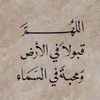 اللهُمَّ
قبولاً في الأرض
ومحبة في السَّماء